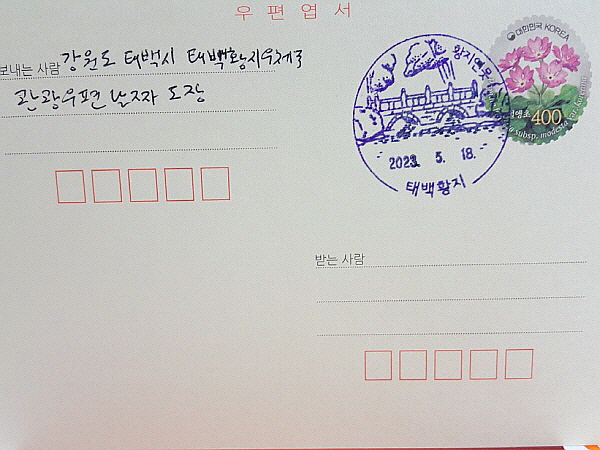 우편엽서
보내는 사람 강원도 태백시 태백황지우체국
관광우편 날짜 도장
대한민국 KOREA
400
subsp. modesta var. koreana
황지연못
2023. 5. 18.
태백황지
받는 사람